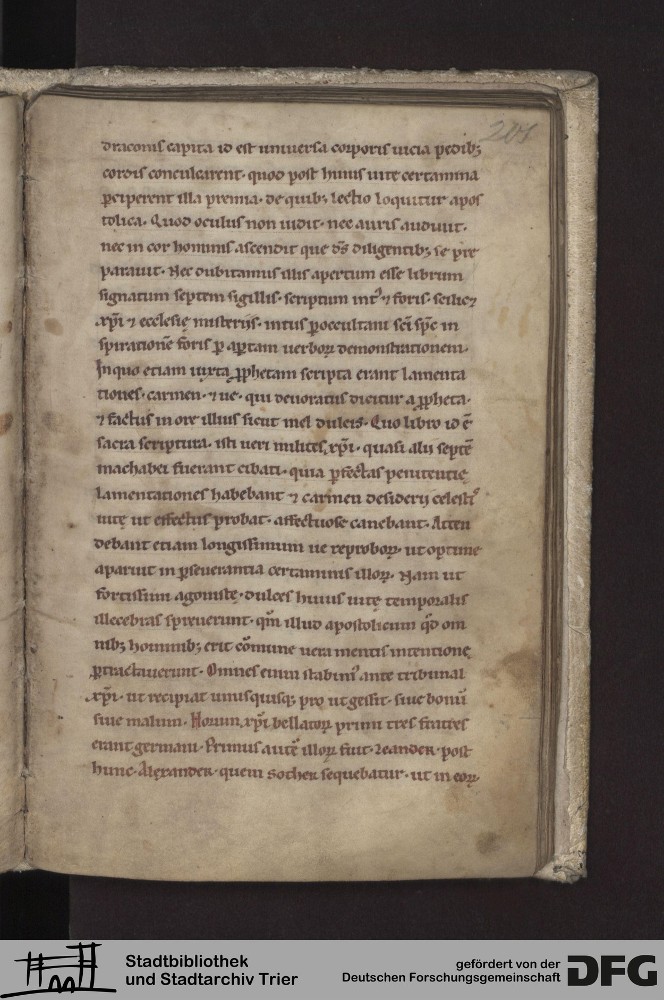 201
draconis capita id est uniuersa corporis uicia pedib;
cordis conculcarent· quod post huius uite certamina
p̱ciperent illa premia· de quib; lectio loquitur apos
tolica· Quod oculus non uidit· nec auris audiuit·
nec in cor hominis ascendit que d̅s diligentib; se pre
parauit· Nec dubitamus illis apertum esse librum
signatum septem sigillis· scriptum int᷒ ⁊ foris· scilic&
xp̅i ⁊ ecclesię misteriis· intus p̱ occultam sc̅i sp̅c in
spiratione̅ foris p̱ ap̱tam uerboꝝ demonstrationem·
In quo etiam iuxta ꝓphetam scripta erant lamenta
tiones· carmen· ⁊ ue· qui deuoratus dicitur a ꝓpheta·
⁊ factus in ore illius sicut mel dulcis· Quo libro id e̅
sacra scriptura· isti ueri milites xp̅i· quasi alii septe̅
machabei fuerant cibati· quia p̱fectas penitentię
lamentationes habebant ⁊ carmen desiderii celesti᷒
uitę ut effectus probat· affectuose canebant· Atten
debant etiam longissimum ue reproboꝝ· ut optime
aparuit in p̱seuerantia certaminis illoꝝ· Nam ut
fortissimi agonistę· dulces huius uitę temporalis
illecebras spreuerunt· qm̅ illud apostolicum qd̅ om
nib; hominib; erit co̅mune uera mentis intentione
p̱tractauerunt· Omnes enim stabim᷒ ante tribunal
xp̅i· ut recipiat unusquisq; pro ut gessit· siue bonu̅
siue malum· Horum xp̅i bellatoꝝ primi tres fratres
erant germani· Primus aute̅ illoꝝ fuit· Leander· post
hunc· Alexander· quem Sother sequebatur· ut in eoꝝ
Stadtbibliothek
und Stadtarchiv Trier
gefördert von der
Deutschen Forschungsgemeinschaft
DFG